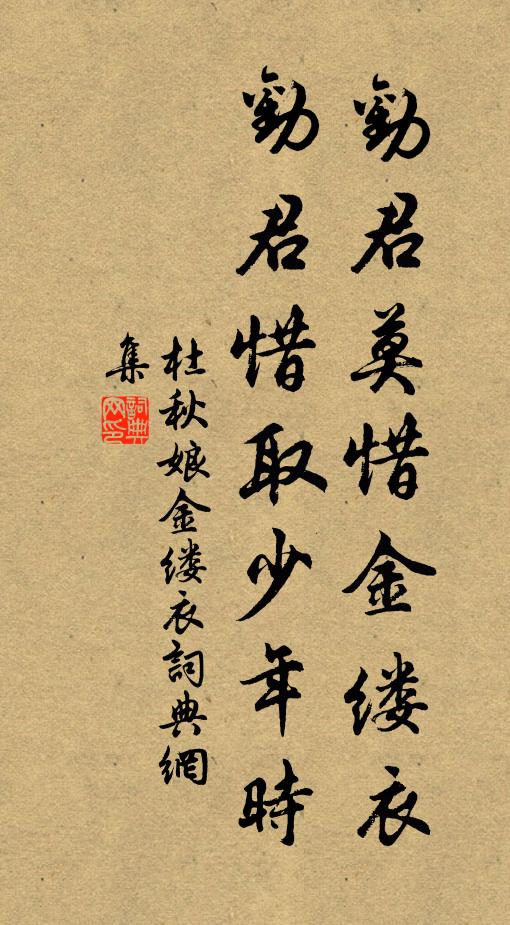 勸君莫惜金缕衣
勸君惜取少年時
杜秋娘金缕衣詞典網
集
詞典
网印